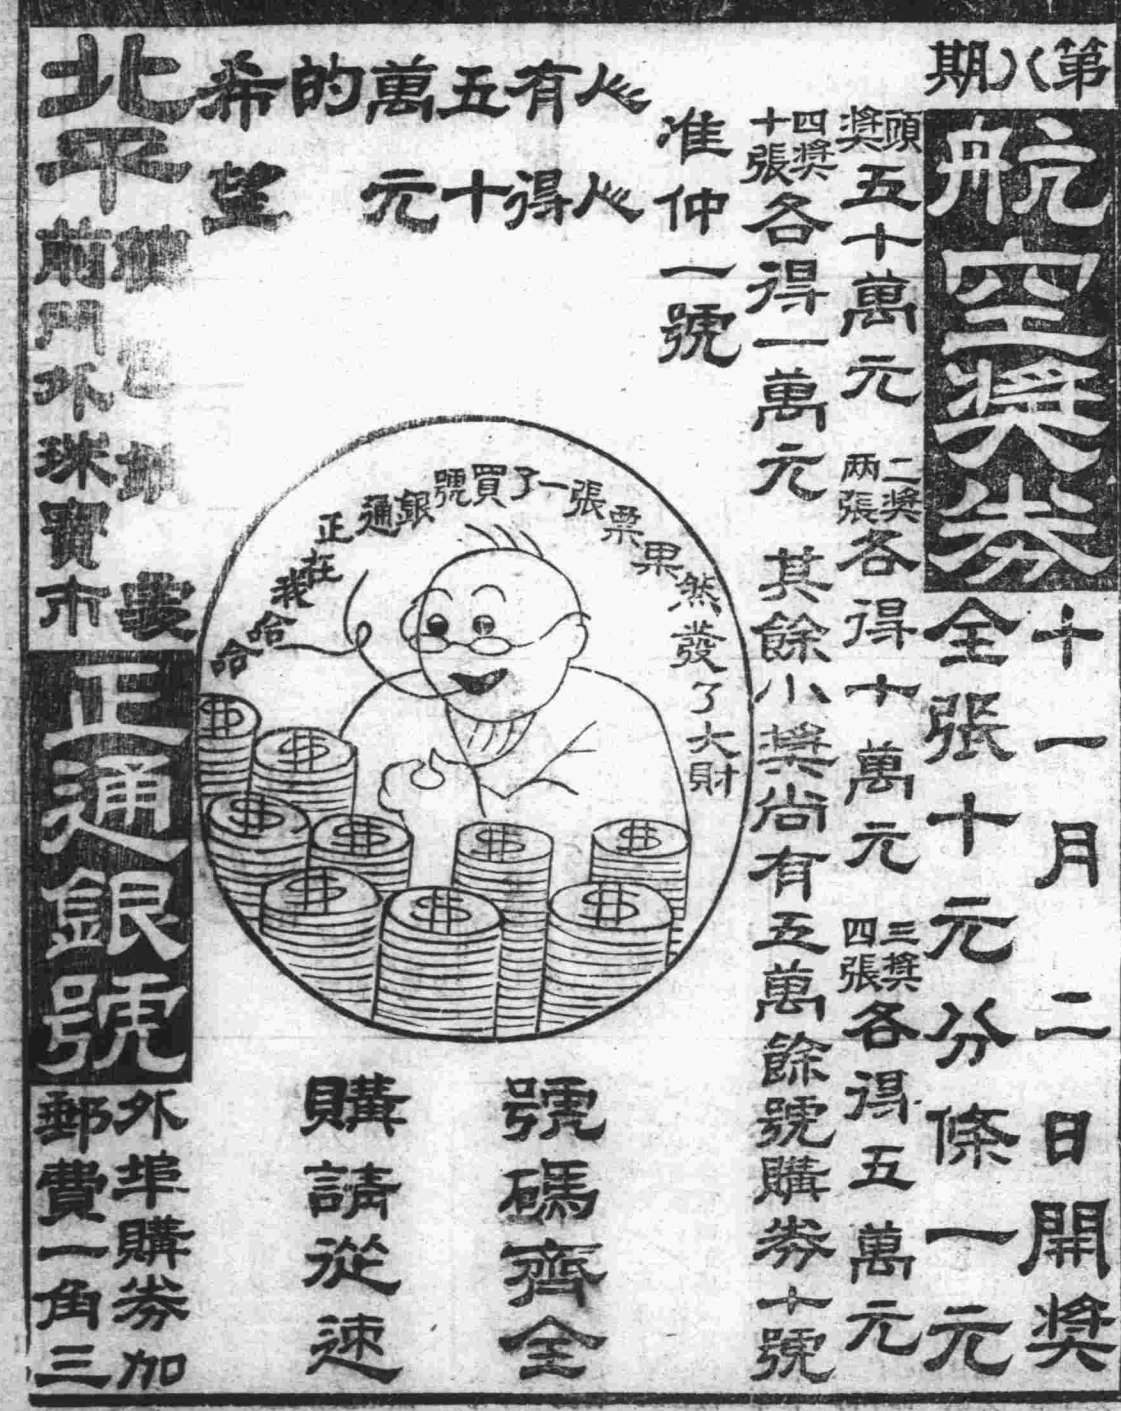 第（八）期
航空獎券
十一月二日開獎
全張十元分條一元
頭獎五十萬元
二獎两張各得十萬元
三獎四張各得五萬元
四獎十張各得一萬元
其餘小獎尚有五萬餘號購劵十號
准仲一號
人人有五萬的希
人人得十元望
哈哈我在正通銀號買了一張票果然發了大財
號碼齊全
購請從速
北平
前門外珠寶市
正通銀號
外埠購劵加
郵費一角三